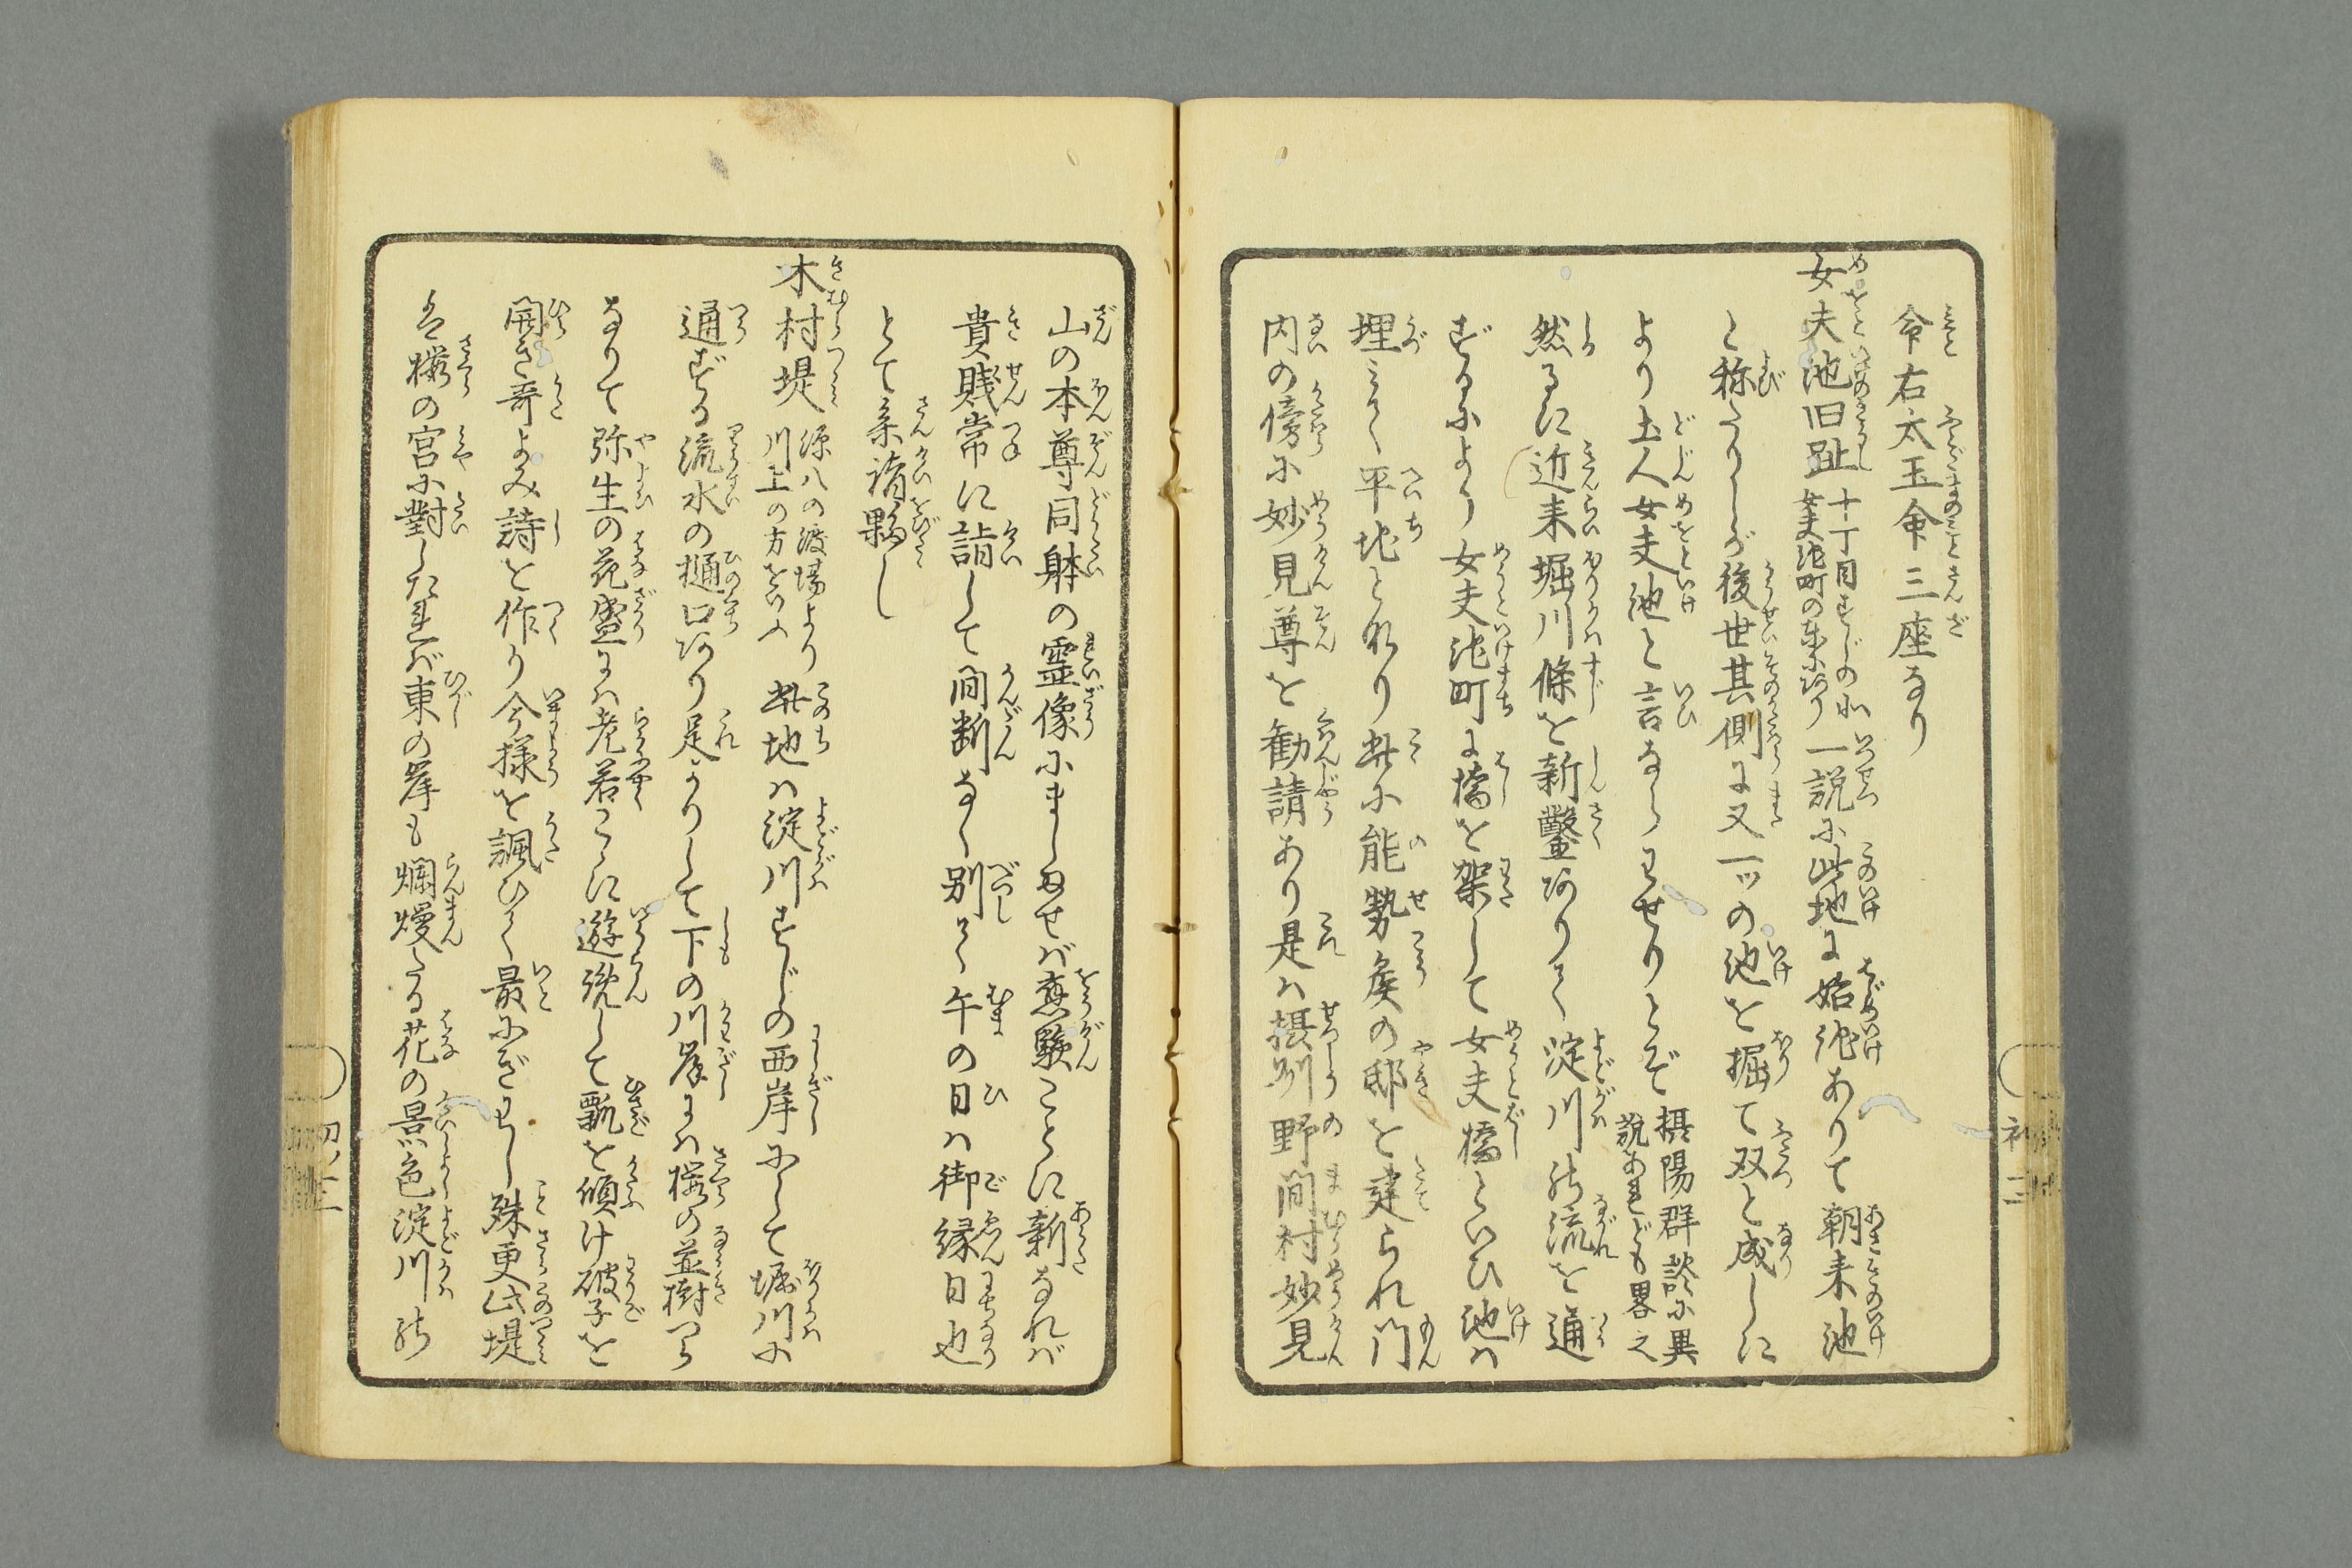 命右太玉命三座なり
女夫池旧趾 十丁目すじの北
女夫池町の東にあり 一説に此地に始池ありて朝来池
と称たりしが後世其側に又一ッの池を掘て双と成しに
より土人女夫池と言ならわせりとぞ 摂陽群談に異
説あれども畧之
然るに近来堀川條を新鑿ありて淀川の流を通
ずるによりて女夫池町に橋を架して女夫橋といひ池は
埋みて平地となれり此に能勢矦の邸を建られ門
内の傍に妙見尊を勧請あり是は摂州野間村妙見
山の本尊同躰の霊像にましませば應験ことに新なれば
貴賤常に詣して間断なく別て午の日は御縁日也
とて参詣夥し
木村堤 源八の渡場より
川上の方をいふ 此地は淀川すじの西岸にして堀川に
通ずる流水の樋口あり是よりして下の川岸には桜の並樹つら
なりて弥生の花盛には老若ここに遊覧して瓢を傾け破子を
開き哥よみ詩を作り今様を諷ひて最にぎわし殊更此堤
は桜の宮に對したれば東の岸も爛熳たる花の景色淀川の
初ノ十二